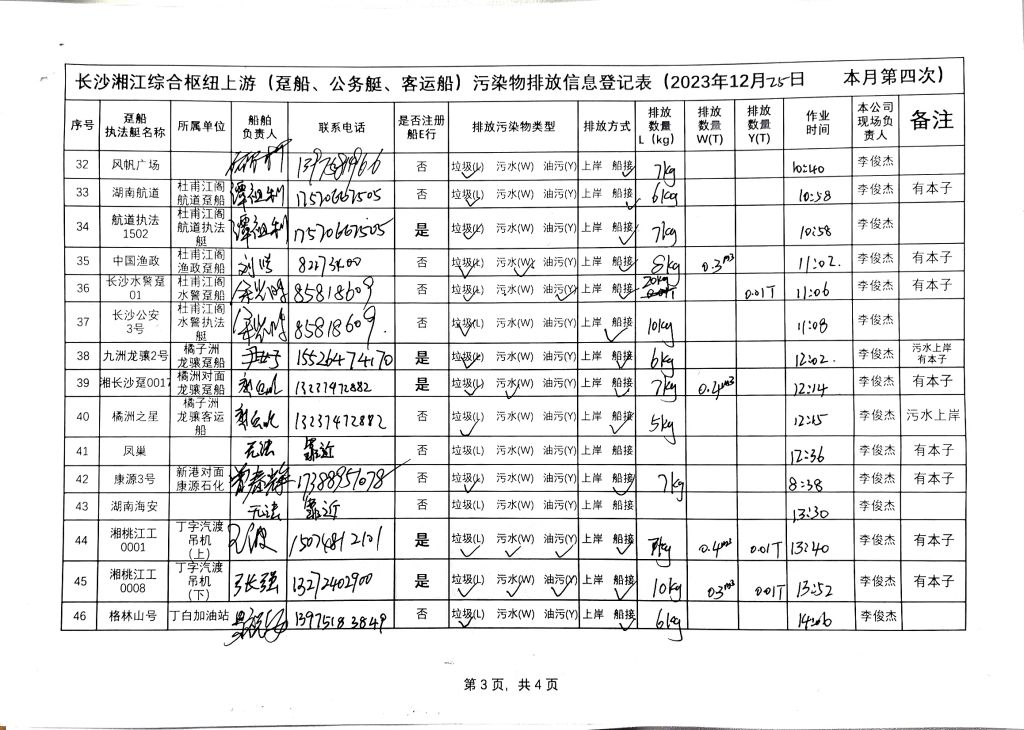 长沙湘江综合枢纽上游（趸船、公务艇、客运船）污染物排放信息登记表（2023年12月25日 本月第四次）
序号 趸船执法艇名称 所属单位 船舶负责人 联系电话 是否注册船E行 排放污染物类型 排放方式 排放数量L（kg） 排放数量W(T) 排放数量Y(T) 作业时间 本公司现场负责人 备注
32 风帆广场 否 垃圾(L) 污水(W) 油污(Y) 上岸 船接 7kg 10:40 李俊杰
33 湖南航道 杜甫江阁航道趸船 谭祖利 17570667505 否 垃圾(L) 污水(W) 油污(Y) 上岸 船接 6kg 10:58 李俊杰 有本子
34 航道执法1502 杜甫江阁航道执法艇 谭祖利 17570667505 是 垃圾(L) 污水(W) 油污(Y) 上岸 船接 7kg 10:58 李俊杰
35 中国渔政 杜甫江阁渔政趸船 否 垃圾(L) 污水(W) 油污(Y) 上岸 船接 8kg 0.3m3 11:02. 李俊杰 有本子
36 长沙水警趸01 杜甫江阁水警趸船 85818609 否 垃圾(L) 污水(W) 油污(Y) 上岸 船接 20kg 0.01T 11:06 李俊杰 有本子
37 长沙公安3号 杜甫江阁水警执法艇 85818609. 否 垃圾(L) 污水(W) 油污(Y) 上岸 船接 10kg 11:08 李俊杰
38 九洲龙骧2号 橘子洲龙骧趸船 15526474170 是 垃圾(L) 污水(W) 油污(Y) 上岸 船接 6kg 12:02. 李俊杰 污水上岸有本子
39 湘长沙趸0017 橘洲对面龙骧趸船 13237472882 是 垃圾(L) 污水(W) 油污(Y) 上岸 船接 7kg 0.4m3 12:14 李俊杰 有本子
40 橘洲之星 橘子洲龙骧客运船 13237472882 否 垃圾(L) 污水(W) 油污(Y) 上岸 船接 5kg 12:15 李俊杰 污水上岸
41 凤巢 无法 靠近 否 垃圾(L) 污水(W) 油污(Y) 上岸 船接 12:36 李俊杰 有本子
42 康源3号 新港对面康源石化 17388951078 否 垃圾(L) 污水(W) 油污(Y) 上岸 船接 7kg 8:38 李俊杰 有本子
43 湖南海安 无法 靠近 否 垃圾(L) 污水(W) 油污(Y) 上岸 船接 13:30 李俊杰
44 湘桃江工0001 丁字汽渡吊机（上） 15074812101 是 垃圾(L) 污水(W) 油污(Y) 上岸 船接 7kg 0.4m3 0.01T 13:40 李俊杰 有本子
45 湘桃江工0008 丁字汽渡吊机（下） 张强 13272402900 是 垃圾(L) 污水(W) 油污(Y) 上岸 船接 10kg 0.3m3 0.01T 13:52 李俊杰 有本子
46 格林山号 丁白加油站 13975183849 否 垃圾(L) 污水(W) 油污(Y) 上岸 船接 6kg 14:06 李俊杰
第 3 页，共 4 页